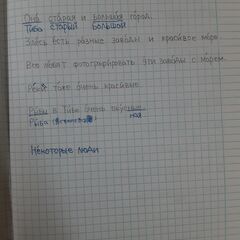 Она старая и большая город.
Тиба старый большой
Здесь есть разные заводы и красивое море.
Все любят фотографировать эти заводы с морем.
тоже очень красивые.
Рыбы в Тибе очень вкусные.
Рыба ная
Некоторые люди